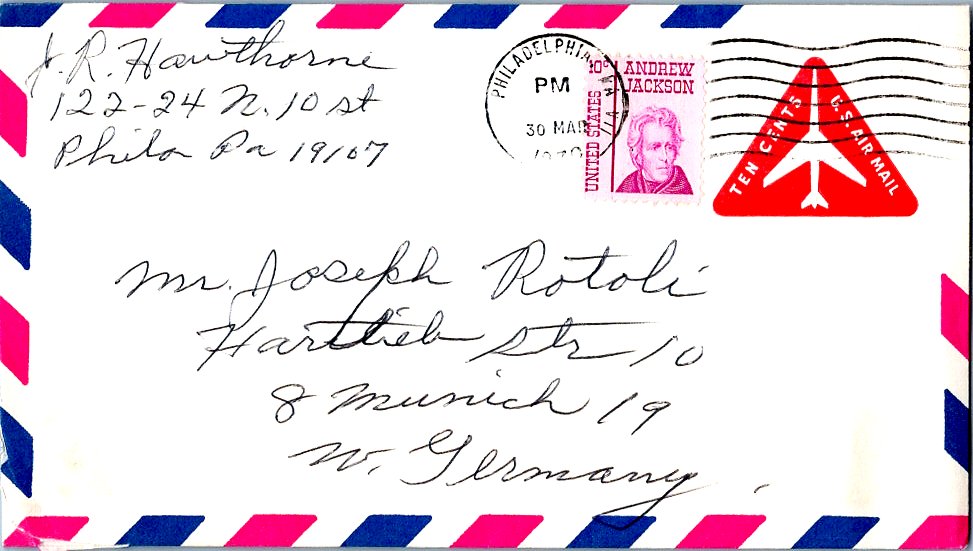 J. R. Hawthorne
122-24 N. 10 st
Phila Pa 19107
PHILADELPHIA, PA
PM
30 MAR
10c ANDREW JACKSON
UNITED STATES
TEN CENTS
U.S. AIR MAIL
Mr. Joseph Rotoli
Hartlieb Str 10
8 Munich 19
W. Germany.